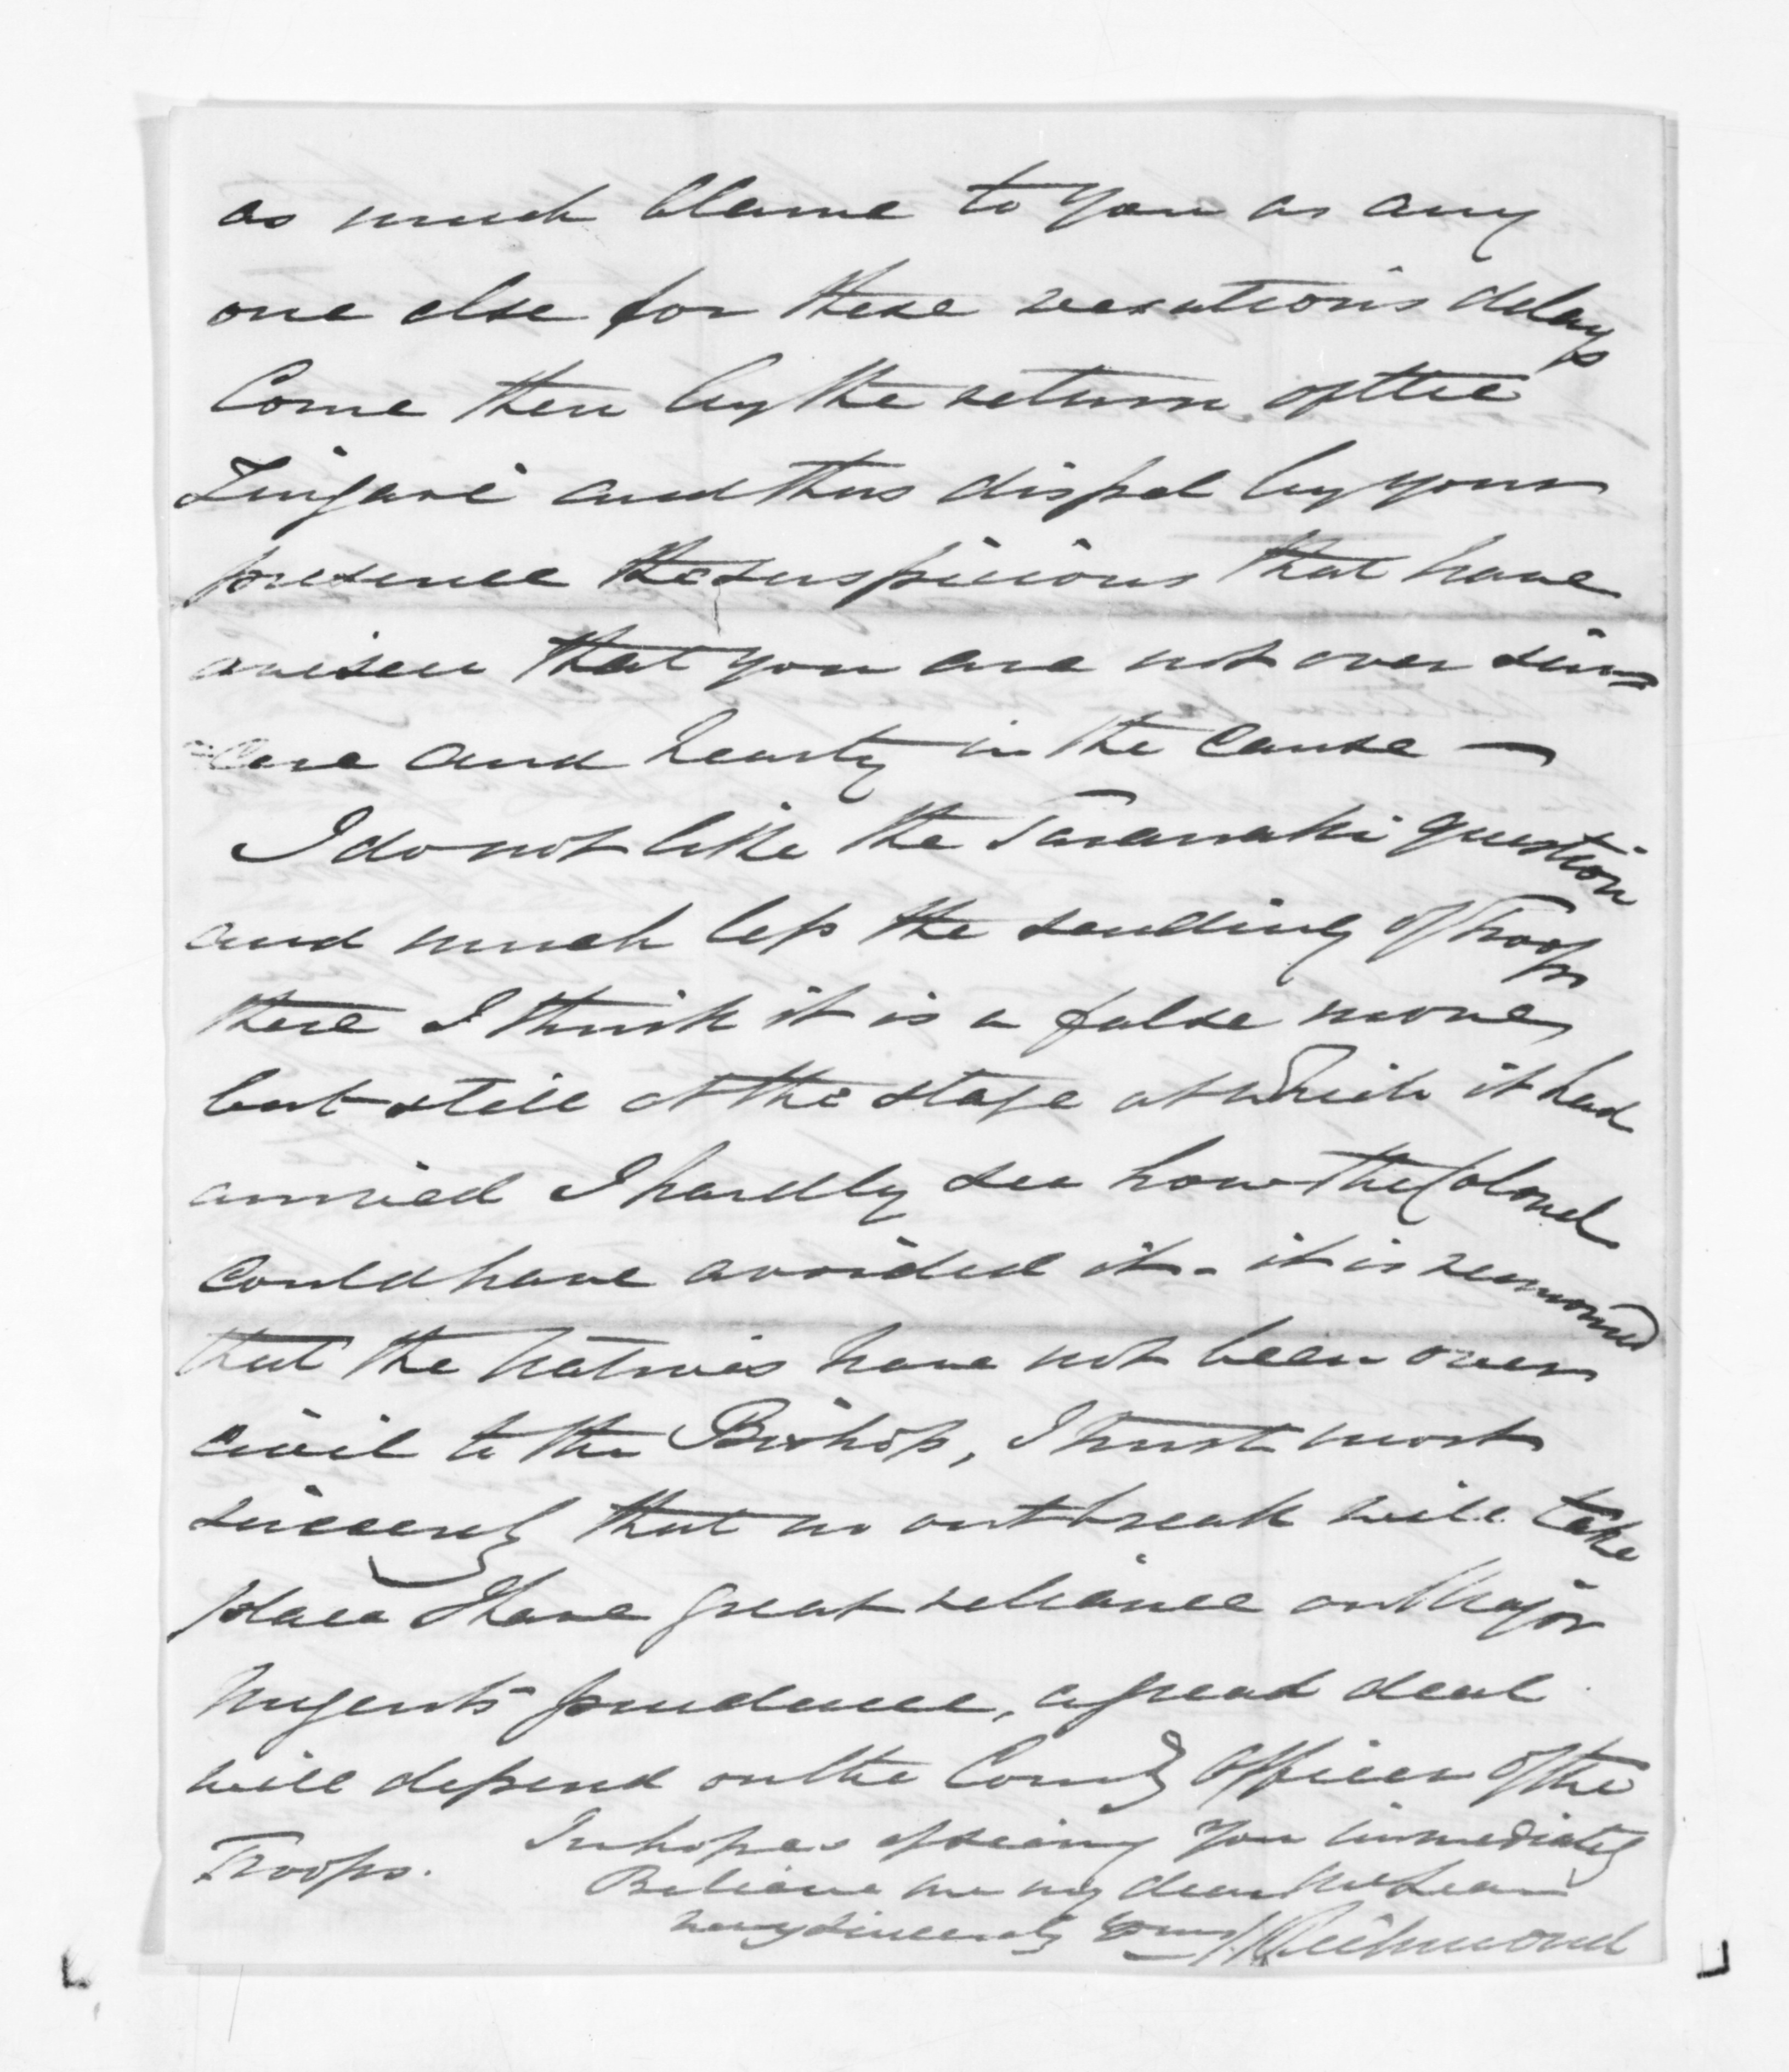 as much blame to you as any
one else for these vexations delays
Come then by the return of the
Zingari and thus dispel by your
presence the suspicions that have
arisen that you are not over sin=
=cere and hearty in the cause —
I do not like the Taranaki question
and much less the sending of Troops
there I think it is a false move,
but still at the stage at which it had
arrived I hardly see how the Colonel
could have avoided it - it is rumoured
that the Natives have not been over
civil to the Bishop, I trust most
sincerely that no outbreak will take
place I have great reliance on Major
Nugent's prudence, a great deal
will depend on the Comdg Officer of the
Troops. In hopes of seeing you immediately
Believe me my dear McLean
very sincerely yours Richmond